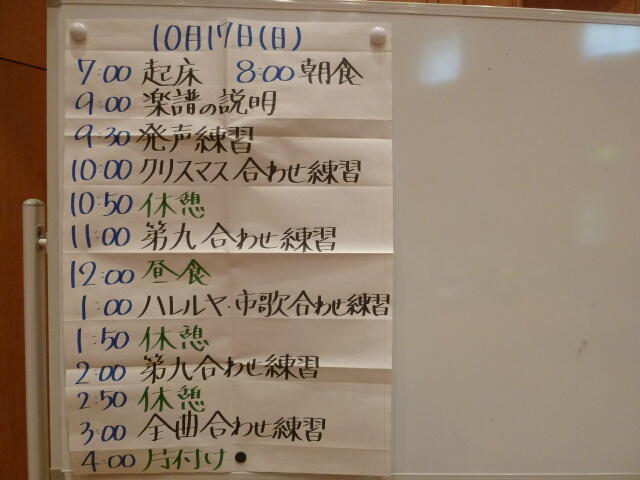 10月17日(日)
7:00 起床 8:00 朝食
9:00 楽譜の説明
9:30 発声練習
10:00 クリスマス合わせ練習
10:50 休憩
11:00 第九合わせ練習
12:00 昼食
1:00 ハレルヤ・市歌合わせ練習
1:50 休憩
2:00 第九合わせ練習
2:50 休憩
3:00 全曲合わせ練習
4:00 片付け